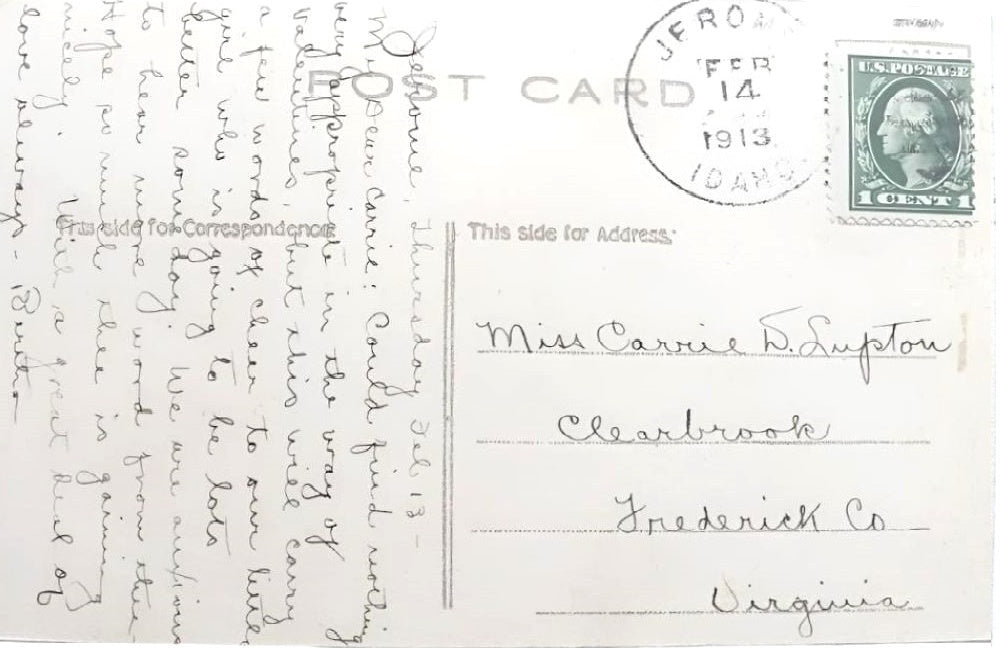 POST CARD
JEROME
FEB
14
1913
IDAHO
U.S. POSTAGE
1 CENT 1
This side for Correspondence
This side for Address:
Jerome, Thursday Feb 13 –
My Dear Carrie: Could find nothing
very appropriate in the way of
Valentines, but this will carry
a few words of cheer to our little
girl who is going to be lots
better some day. We are anxious
to hear more word from thee
Hope so much thee is gaining
nicely. With a great deal of
love always –
Miss Carrie D. Lupton
Clearbrook
Frederick Co
Virginia